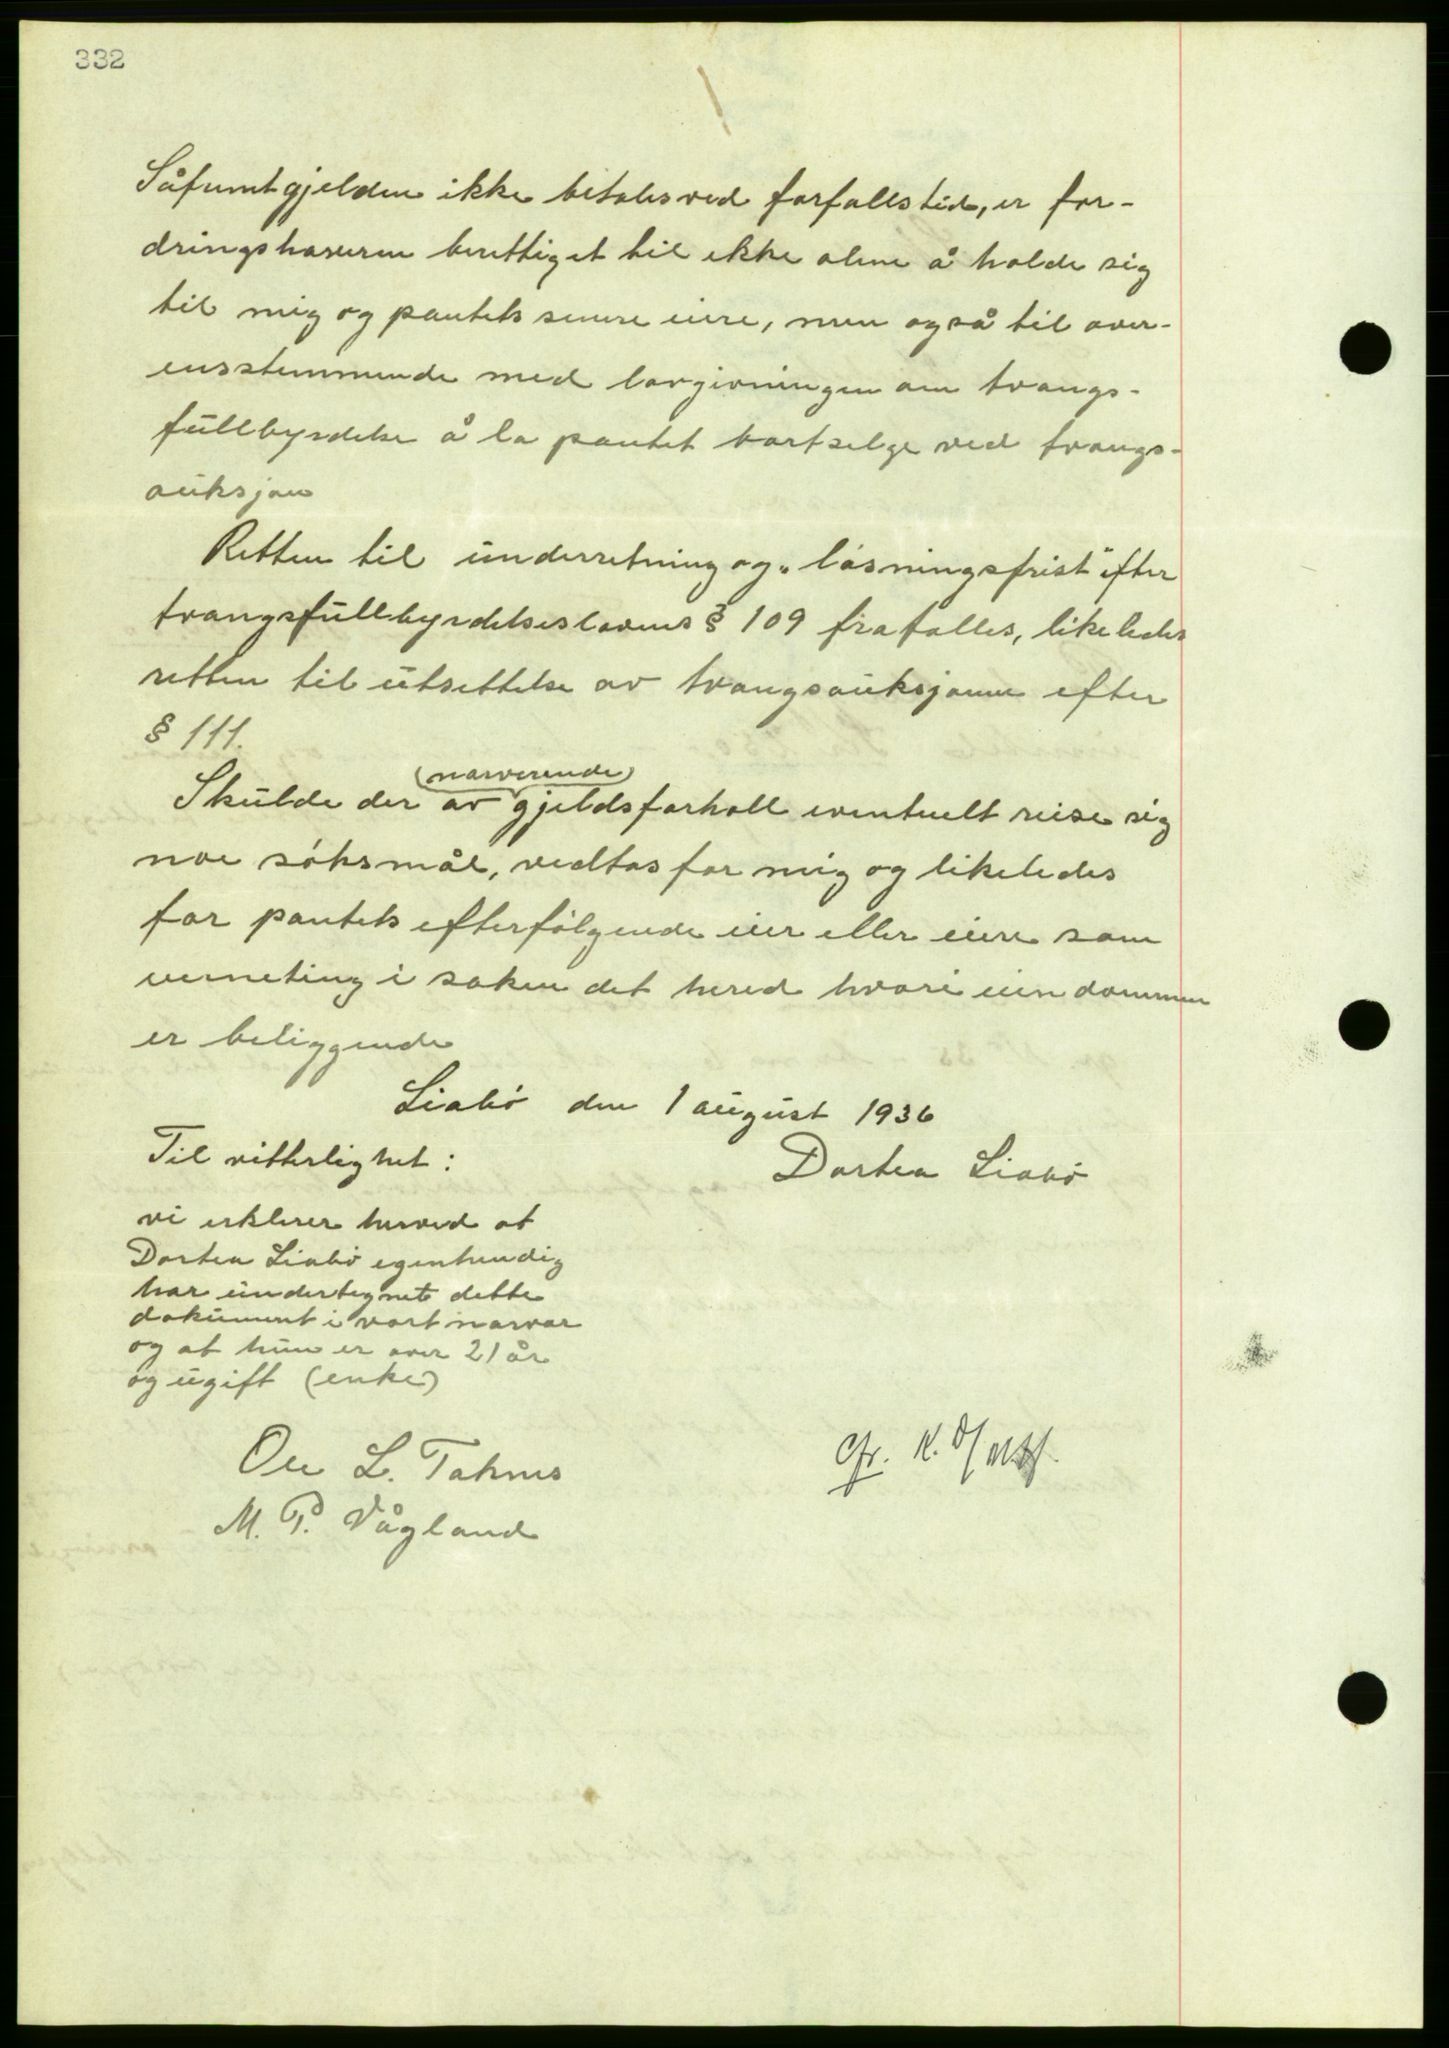 332
Såfremt gjelden ikke betales ved forfallstid, er for-
dringshaveren berettiget til ikke alene å holde sig
til mig og pantets senere eiere, men også til over-
ensstemmende med lovgivningen om tvangs-
fullbyrdelse å la pantet bortselge ved tvangs-
auksjon
Retten til underretning og "løsningsfrist" efter
tvangsfullbyrdelseslovens § 109 frafalles, likeledes
retten til utsettelse av tvangsauksjonen efter
§ 111.
(nærverende)
Skulde der av gjeldsforhold eventuelt reise sig
noe søksmål, vedtas for mig og likeledes
for pantets efterfølgende eier eller eiere som
verneting i saken det hered hvori eiendommen
er beliggende
Liabø den 1 august 1936
Til vitterlighet:
Dortea Liabø
vi erklerer herved at
Dortea Liabø egenhendig
har undertegnet dette
dokument i vort nærvær
og at hun er over 21 år
og ugift (enke)
Ole L. Taknes
M. P. Vågland